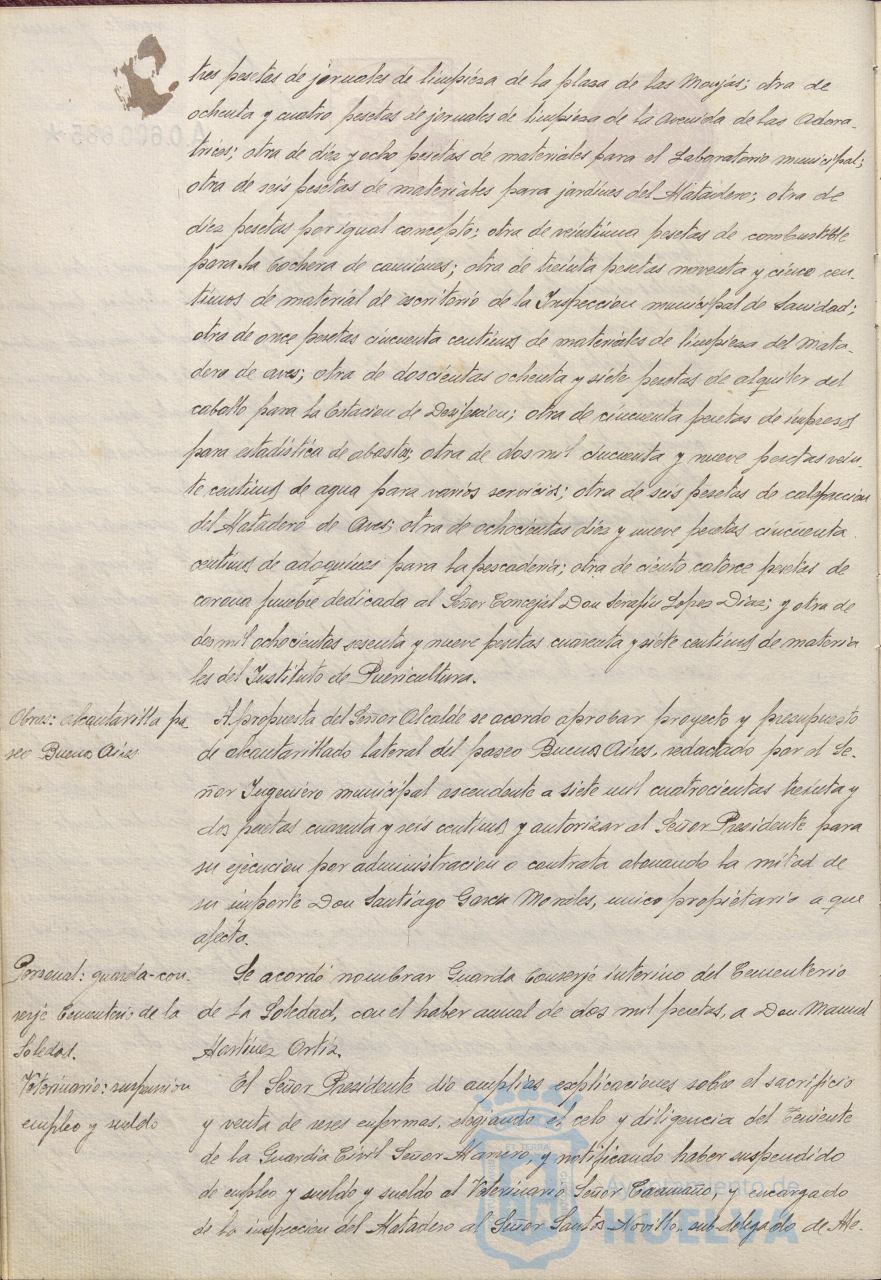 tres pesetas de jornales de limpieza de la plaza de las Monjas; otra de
ochenta y cuatro pesetas de jornales de limpieza de la Avenida de las Adora-
trices; otra de diez y ocho pesetas de materiales para el Laboratorio municipal;
otra de seis pesetas de materiales para jardines del Matadero; otra de
diez pesetas por igual concepto; otra de veintiuna pesetas de combustible
para la Cochera de camiones; otra de treinta pesetas noventa y cinco cen-
timos de material de escritorio de la Inspeccion municipal de Sanidad;
otra de once pesetas cincuenta centimos de materiales de limpieza del Mata-
dero de aves; otra de doscientas ochenta y siete pesetas de alquiler del
caballo para la Estacion de Desifeccion; otra de cincuenta pesetas de impresos
para estadística de abastos; otra de dos mil cincuenta y nueve pesetas vein-
te centimos de agua para varios servicios; otra de seis pesetas de calefaccion
del Matadero de Aves; otra de ochocientas diez y nueve pesetas cincuenta
centimos de adoquines para la pescaderia; otra de ciento catorce pesetas de
corona funebre dedicada al Señor Concejal Don Serafin Lopez Diaz; y otra de
dos mil ochocientas sesenta y nueve pesetas cuarenta y siete centimos de materia
les del Instituto de Puericultura.
Obras: alcantarilla pa-
seo Buenos Aires
A propuesta del Señor Alcalde se acordo aprobar proyecto y presupuesto
de alcantarillado lateral del paseo Buenos Aires, redactado por el Se-
ñor Ingeniero municipal ascendente a siete mil cuatrocientas treinta y
dos pesetas cuarenta y seis centimos y autorizar al Señor Presidente para
su ejecucion por administracion o contrata abonando la mitad de
su importe Don Santiago Garcia Morales, unico propietario a que
afecta.
Personal: guarda-con
serje Cementerio de la
Soledad.
Se acordó nombrar Guarda Conserje interino del Cementerio
de La Soledad, con el haber anual de dos mil pesetas, a Don Manuel
Martinez Ortiz.
Veterinario: suspension
empleo y sueldo
El Señor Presidente dio amplias explicaciones sobre el sacrificio
y venta de reses enfermas, elogiando el celo y diligencia del Teniente
de la Guardia Civil Señor Manero, y notificando haber suspendido
de empleo y sueldo y sueldo al Veterinario Señor, y encargado
de la inspeccion del Matadero al Señor Santos Novillo, sub-delegado de Me-
Ayuntamiento de
HUELVA